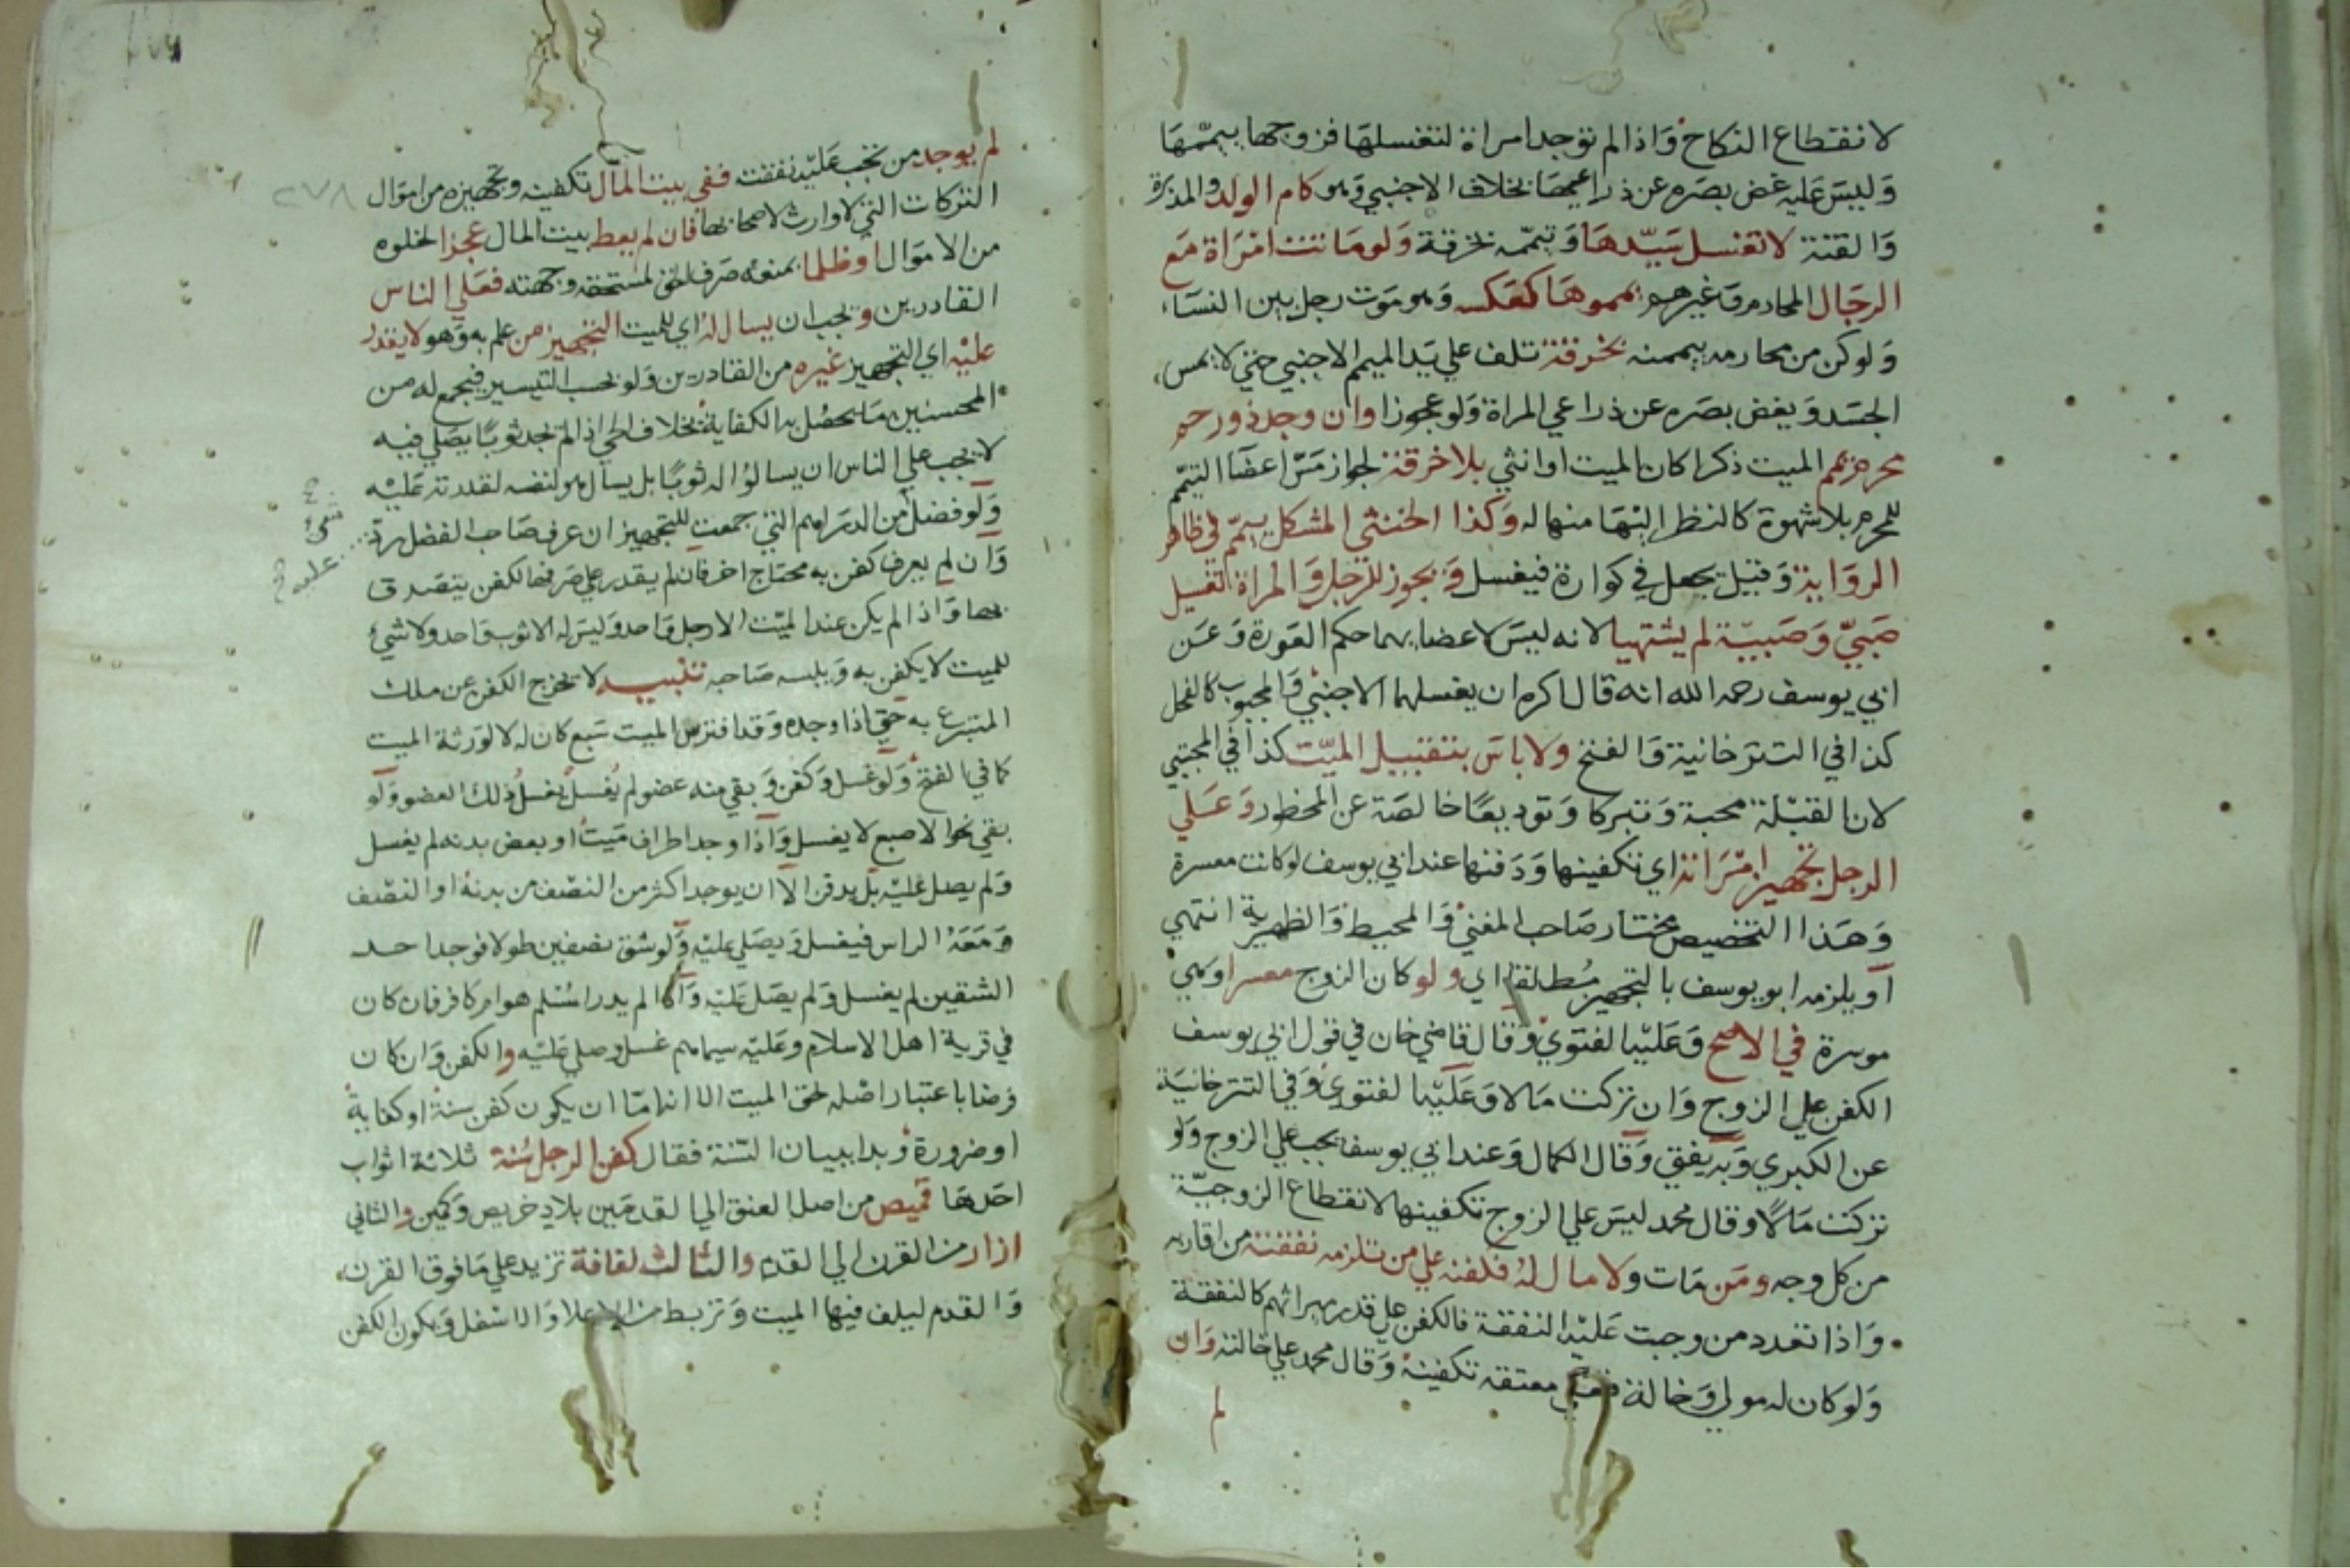 لانقطاع النكاح واذا لم توجد امراة لتغسلها فزوجها ييممها
وليس عليه غض بصره عن ذراعيها بخلاف الاجنبي وهو كام الولد والمدبرة
والقنة لا تغسل سيدها وتيممه بخرقة ولو ماتت امراة مع
الرجال المحارم وغيرهم يمموها كعكسه وهو موت رجل بين النساء
ولو كن من محارمه ييممنه بخرقة تلف علي يد الميمم الاجنبي حتي لا يمس
الجسد ويغض بصره عن ذراعي المراة ولو عجوزا وان وجد ذو رحم
محرم يمم الميت ذكرا كان الميت او انثي بلا خرقة لجواز مس اعضا التيمم
للمحرم بلا شهوة كالنظر اليها منها له وكذا الخنثي المشكل ييمم في ظاهر
الرواية وقيل يجعل في كوارة فيغسل ويجوز للرجل والمراة تغسيل
صبي وصبية لم يشتهيا لانه ليس لاعضايهما حكم العورة وعن
ابي يوسف رحمه الله انه قال اكره ان يغسلهما الاجنبي والمجبوب كالفحل
كذا في التترخانية والفتح ولا باس بتقبيل الميت كذا في المجتبي
لان القبلة محبة وتبركا وتوديعا خالصة عن المحظور وعلي
الرجل تجهيز امراته اي تكفينها ودفنها عند ابي يوسف لو كانت معسرة
وهذا التخصيص مختار صاحب المغني والمحيط والظهيرية انتهي
او يلزمه ابو يوسف بالتجهيز مطلقا اي ولو كان الزوج معسرا وهي
موسرة في الاصح وعليه الفتوي وقال قاضي خان في قول ابي يوسف
الكفن علي الزوج وان تركت مالا وعليه الفتوي وفي التترخانية
عن الكبري وبه يفتي وقال الكمال وعند ابي يوسف يجب علي الزوج ولو
تركت مالا وقال محمد ليس علي الزوج تكفينها لانقطاع الزوجية
من كل وجه ومن مات ولا مال له فكفنه علي من تلزمه نفقته من اقاربه
واذا تعدد من وجبت عليه النفقة فالكفن علي قدر ميراثهم كالنفقة
ولو كان له مولي وخالة فعلي معتقه تكفينه وقال محمد علي خالته وان
لم
لم يوجد من تجب عليه نفقته ففي بيت المال تكفينه وتجهيزه من اموال
٢٧٨
التركات التي لا وارث لاصحابها فان لم يعط بيت المال عجزا لخلوه
من الاموال او ظلما بمنعه صرف الحق لمستحقه وجهته فعلي الناس
القادرين ويجب ان يسال له اي للميت التجهيز من علم به وهو لا يقدر
عليه اي التجهيز غيره من القادرين ولو بحسب التيسير فيجمع له من
المحسنين ما يحصل به الكفاية بخلاف الحي اذا لم يجد ثوبا يصلي فيه
لا يجب علي الناس ان يسالوا له ثوبا بل يسال هو لنفسه لقدرته عليه
ولو فضل من الدراهم التي جمعت للتجهيز ان عرف صاحب الفضل رد
وان لم يعرف كفن به محتاج اخر فان لم يقدر علي صرفها لكفن يتصدق
بها واذا لم يكن عند الميت الا رجل واحد وليس له الا ثوب واحد ولا شي
للميت لا يكفن به ويلبسه صاحبه تنبيه لا يخرج الكفن عن ملك
المتبرع به حتي اذا وجده وقد افترس الميت سبع كان له لا لورثة الميت
كما في الفتح ولو غسل وكفن وبقي منه عضو لم يغسل يغسل ذلك العضو ولو
بقي نحو الاصبع لا يغسل واذا وجد اطراف ميت او بعض بدنه لم يغسل
ولم يصل عليه بل يدفن الا ان يوجد اكثر من النصف من بدنه او النصف
ومعه الراس فيغسل ويصلي عليه ولو شق نصفين طولا فوجد احد
الشقين لم يغسل ولم يصل عليه واذا لم يدر امسلم هو ام كافر فان كان
في قرية اهل الاسلام وعليه سيماهم غسل وصلي عليه والكفن وان كان
فرضا باعتبار اصله لحق الميت الا انه اما ان يكون كفن سنة او كفاية
او ضرورة وبدا ببيان السنة فقال كفن الرجل سنة ثلاثة اثواب
احدها قميص من اصل العنق الي القدمين بلا دخريص وكمين والثاني
ازار من القرن الي القدم والثالث لفافة تزيد علي ما فوق القرن
والقدم ليلف فيها الميت وتربط من الاعلا والاسفل ويكون الكفن